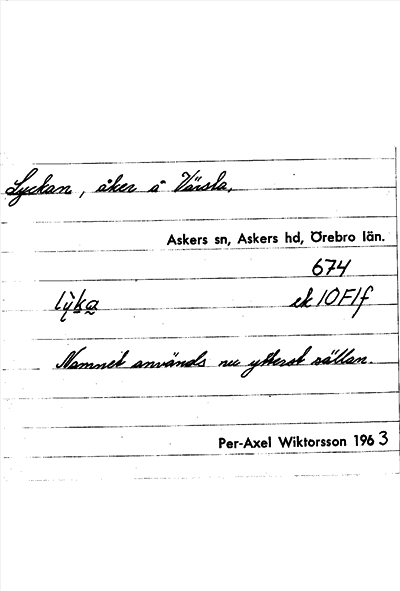 Lyckan, åker å Värsla.
Askers sn, Askers hd, Örebro län.
674
lỳka ek 10F1f
Namnet används nu ytterst sällan.
Per-Axel Wiktorsson 1963